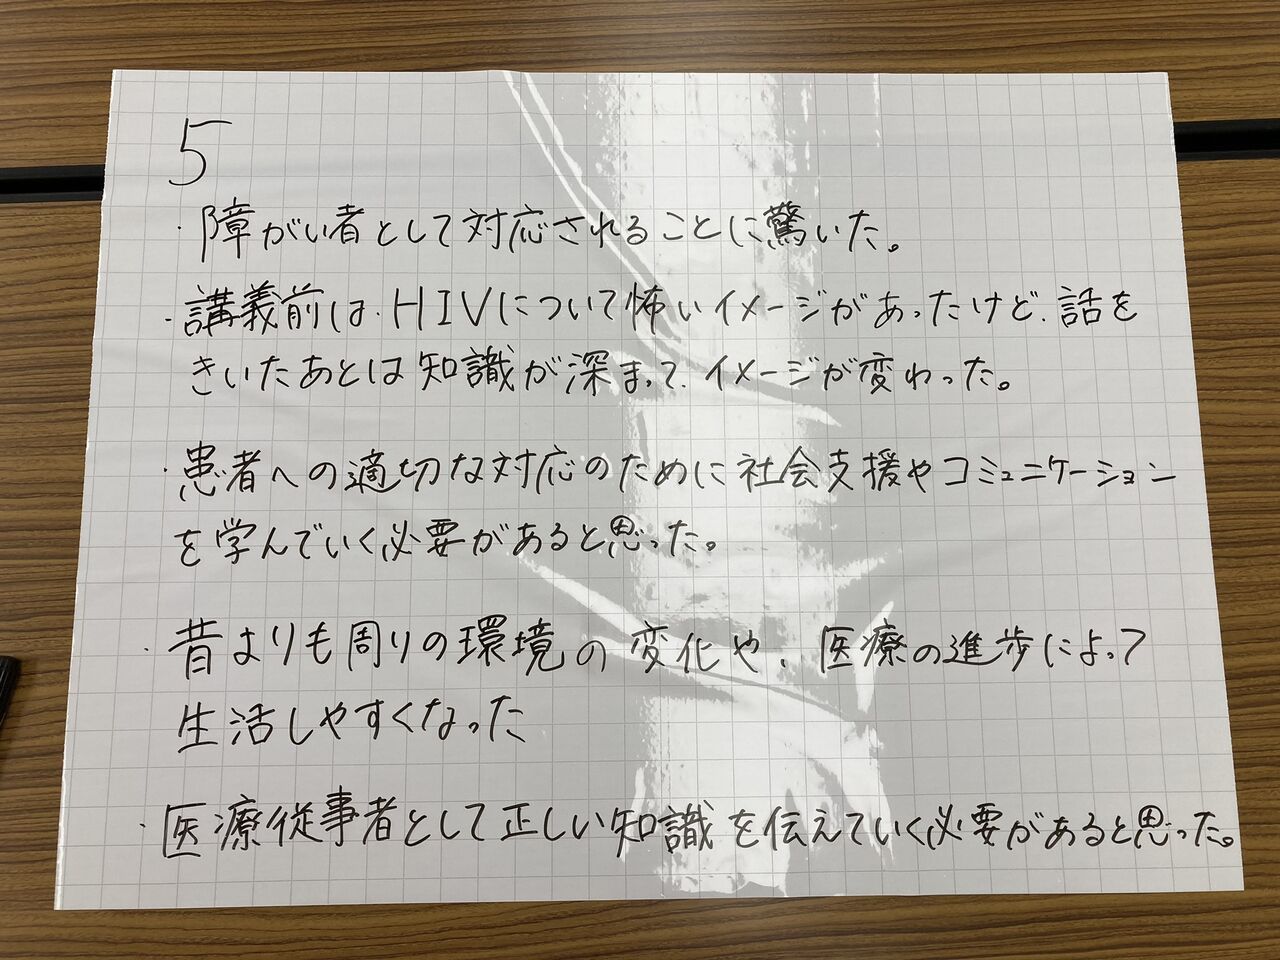 5
・障がい者として対応されることに驚いた。
・講義前は、HIVについて怖いイメージがあったけど、話を
きいたあとは知識が深まって、イメージが変わった。
・患者への適切な対応のために社会支援やコミュニケーション
を学んでいく必要があると思った。
・昔よりも周りの環境の変化や、医療の進歩によって
生活しやすくなった
・医療従事者として正しい知識を伝えていく必要があると思った。